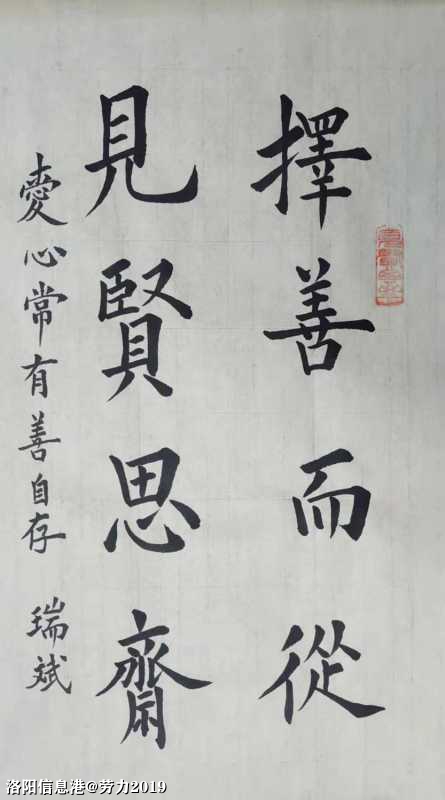 擇善而從
見賢思齋
愛心常有善自存 瑞斌
洛阳信息港@劳力2019